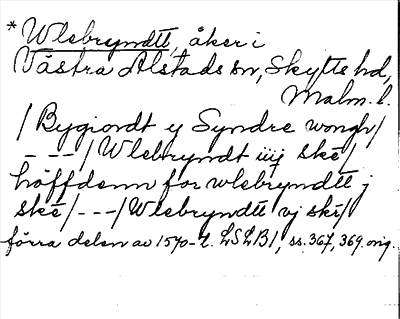 *Wlebryndtt, åker i
Västra Alstads sn, Skytts hd,
Malm. l.
/Bygiordt ej Syndre wongh/
- - -/Wlebryndt iiij skē/
höffdenn for wlebryndtt j
skē/- - -/Wlebryndtt vj skē/
förra delen av 1570-t. LSLB1, ss. 367, 369. orig.